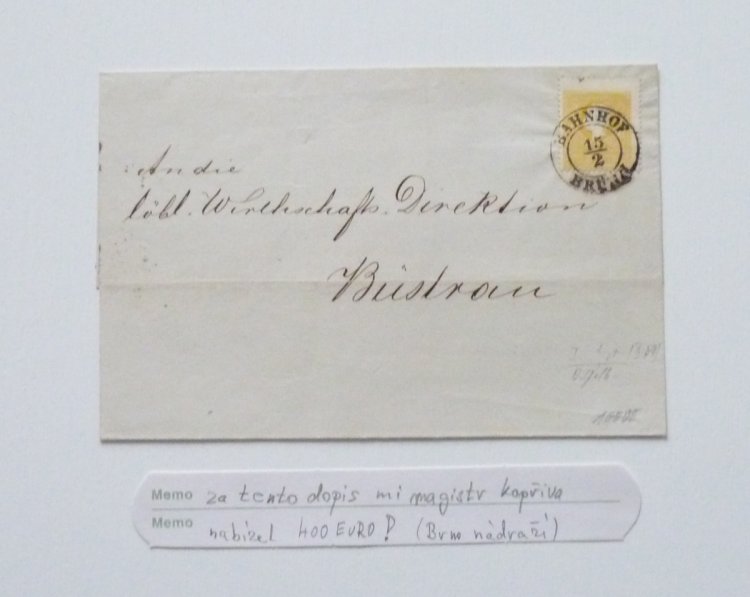 BAHNHOF
15
2
BRÜNN
An die
löbl. Wirthschafts. Direktion
Bistrau
Memo za tento dopis mi magistr kopřiva
Memo nabízel 400 EURO! (Brno nádraží)